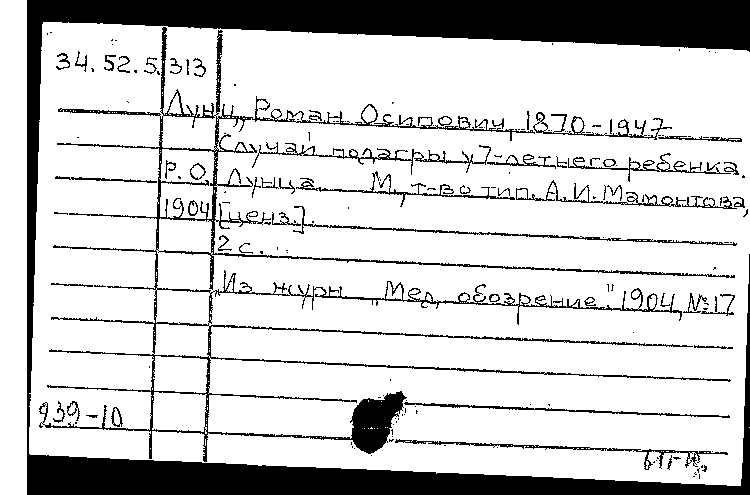 34.52.5.313
Лунц, Роман Осипович, 1870-1947
Случай подагры у 7-летнего ребенка.
Р.О. Лунца. М., т-во тип. А.И. Мамонтова,
1904 [ценз.].
2 с.
Из журн "Мед. обозрение". 1904, №17
239-10